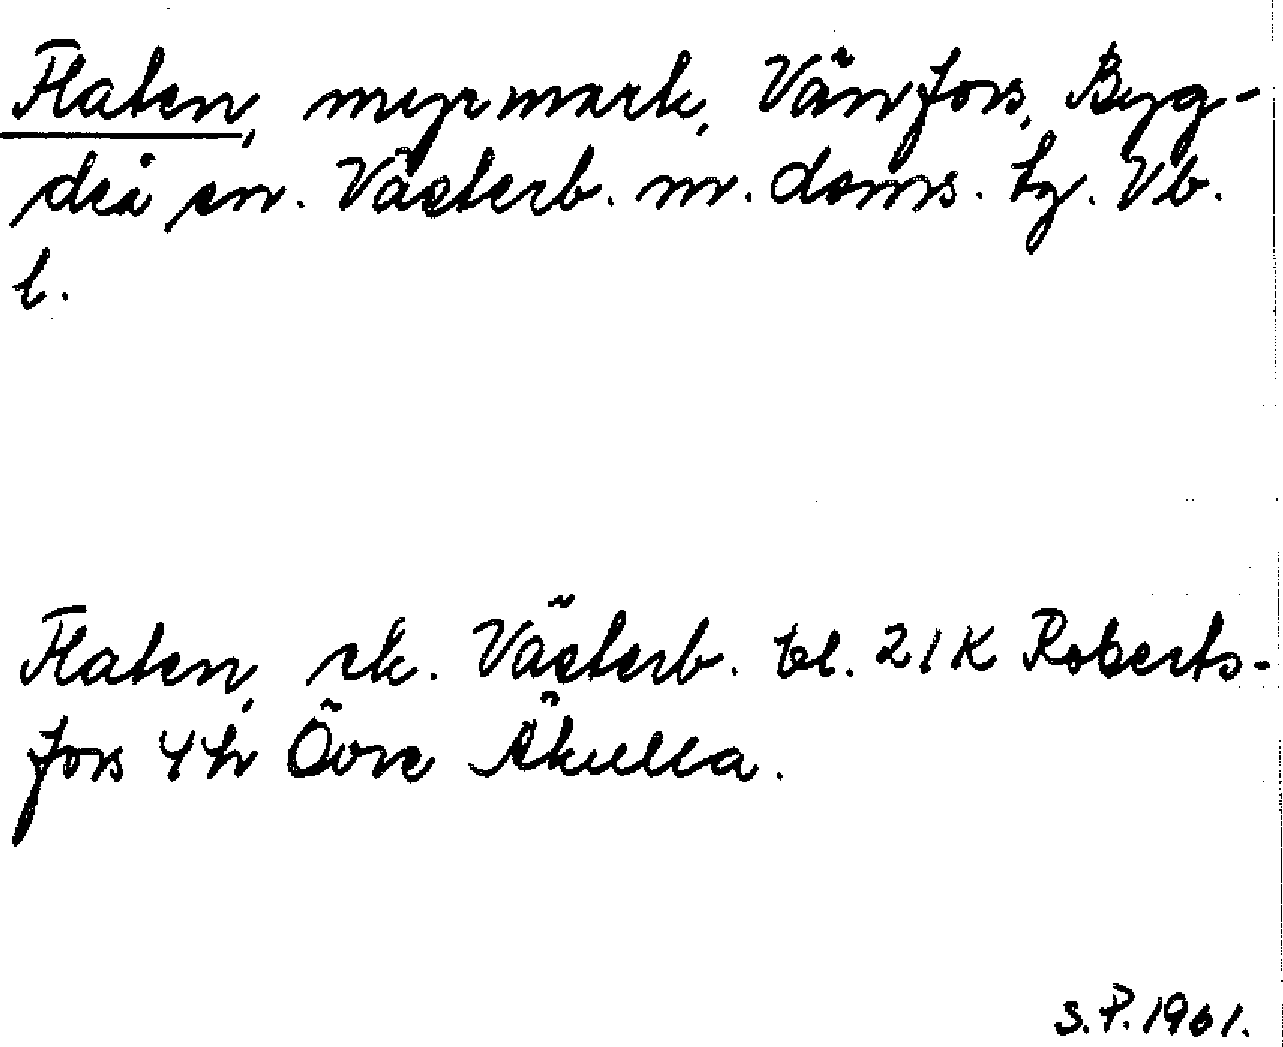 Flaten, myrmark, Vänfors, Byg-
deå sn. Västerb. n. doms. tg. Vb.
l.
Flaten, ek. Västerb. bl. 21K Roberts-
fors 4h Övre Åkulla.
S.P. 1961.